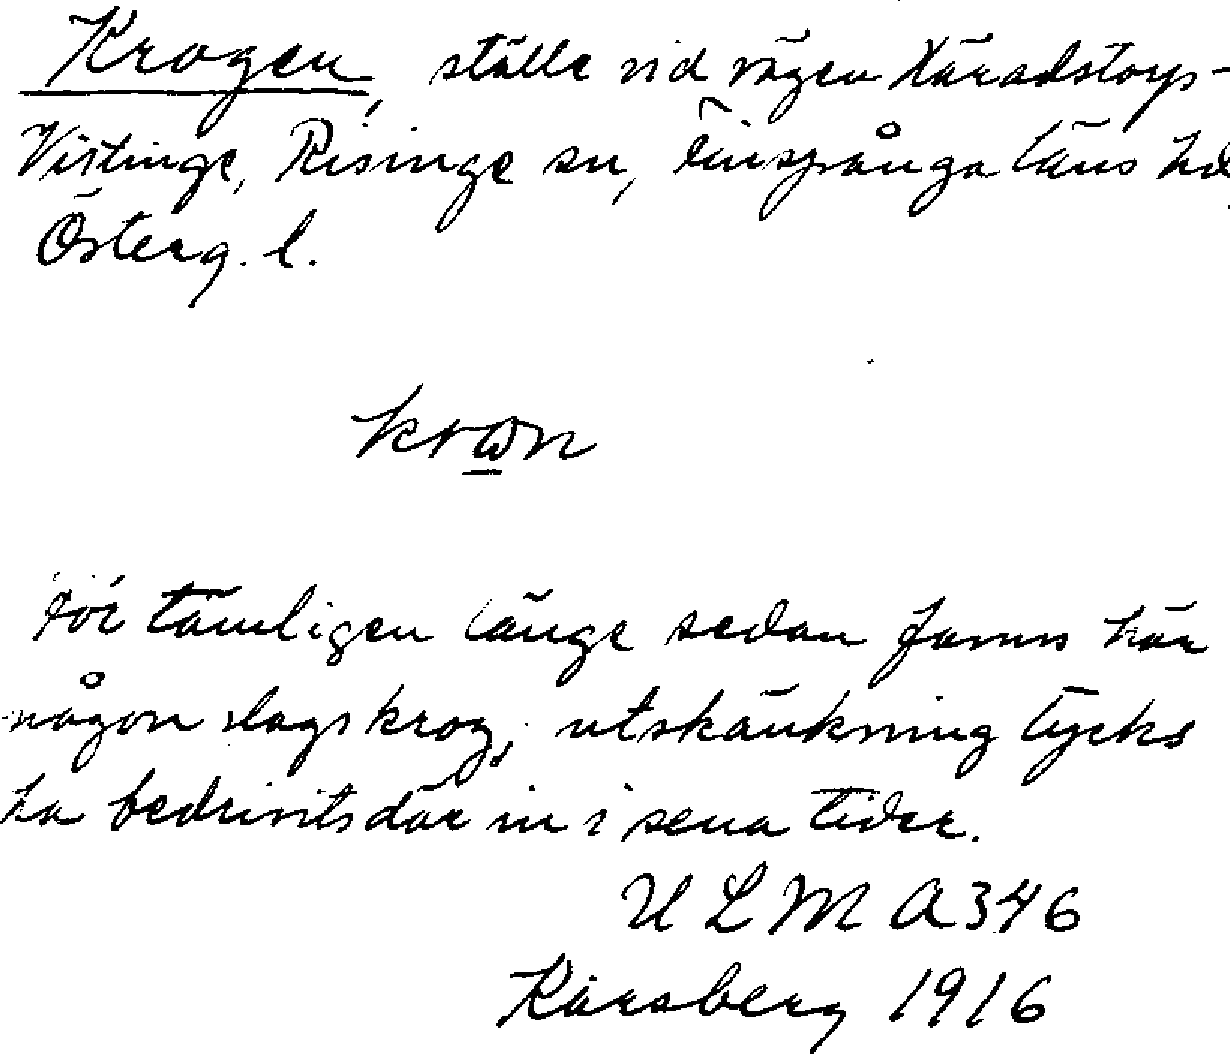 Krogen, ställe vid vägen Häradstorp-
Vistinge, Risinge sn, Finspånga läns hd,
Österg. l.
krωn
För tämligen länge sedan fanns här
någon slags krog, utskänkning tycks
ha bedrivits där in i sena tider.
ULMA 346
Karsberg 1916